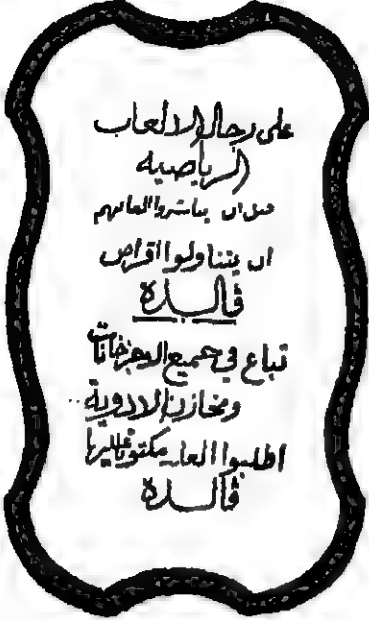 على رجال الالعاب
الرياضيه
قبل ان يباشروا العابهم
ان يتناولوا اقراص
ڤالدة
تباع في جميع الاجزخانات
ومخازن الادوية
اطلبوا العلب مكتوبا عليها
ڤالدة